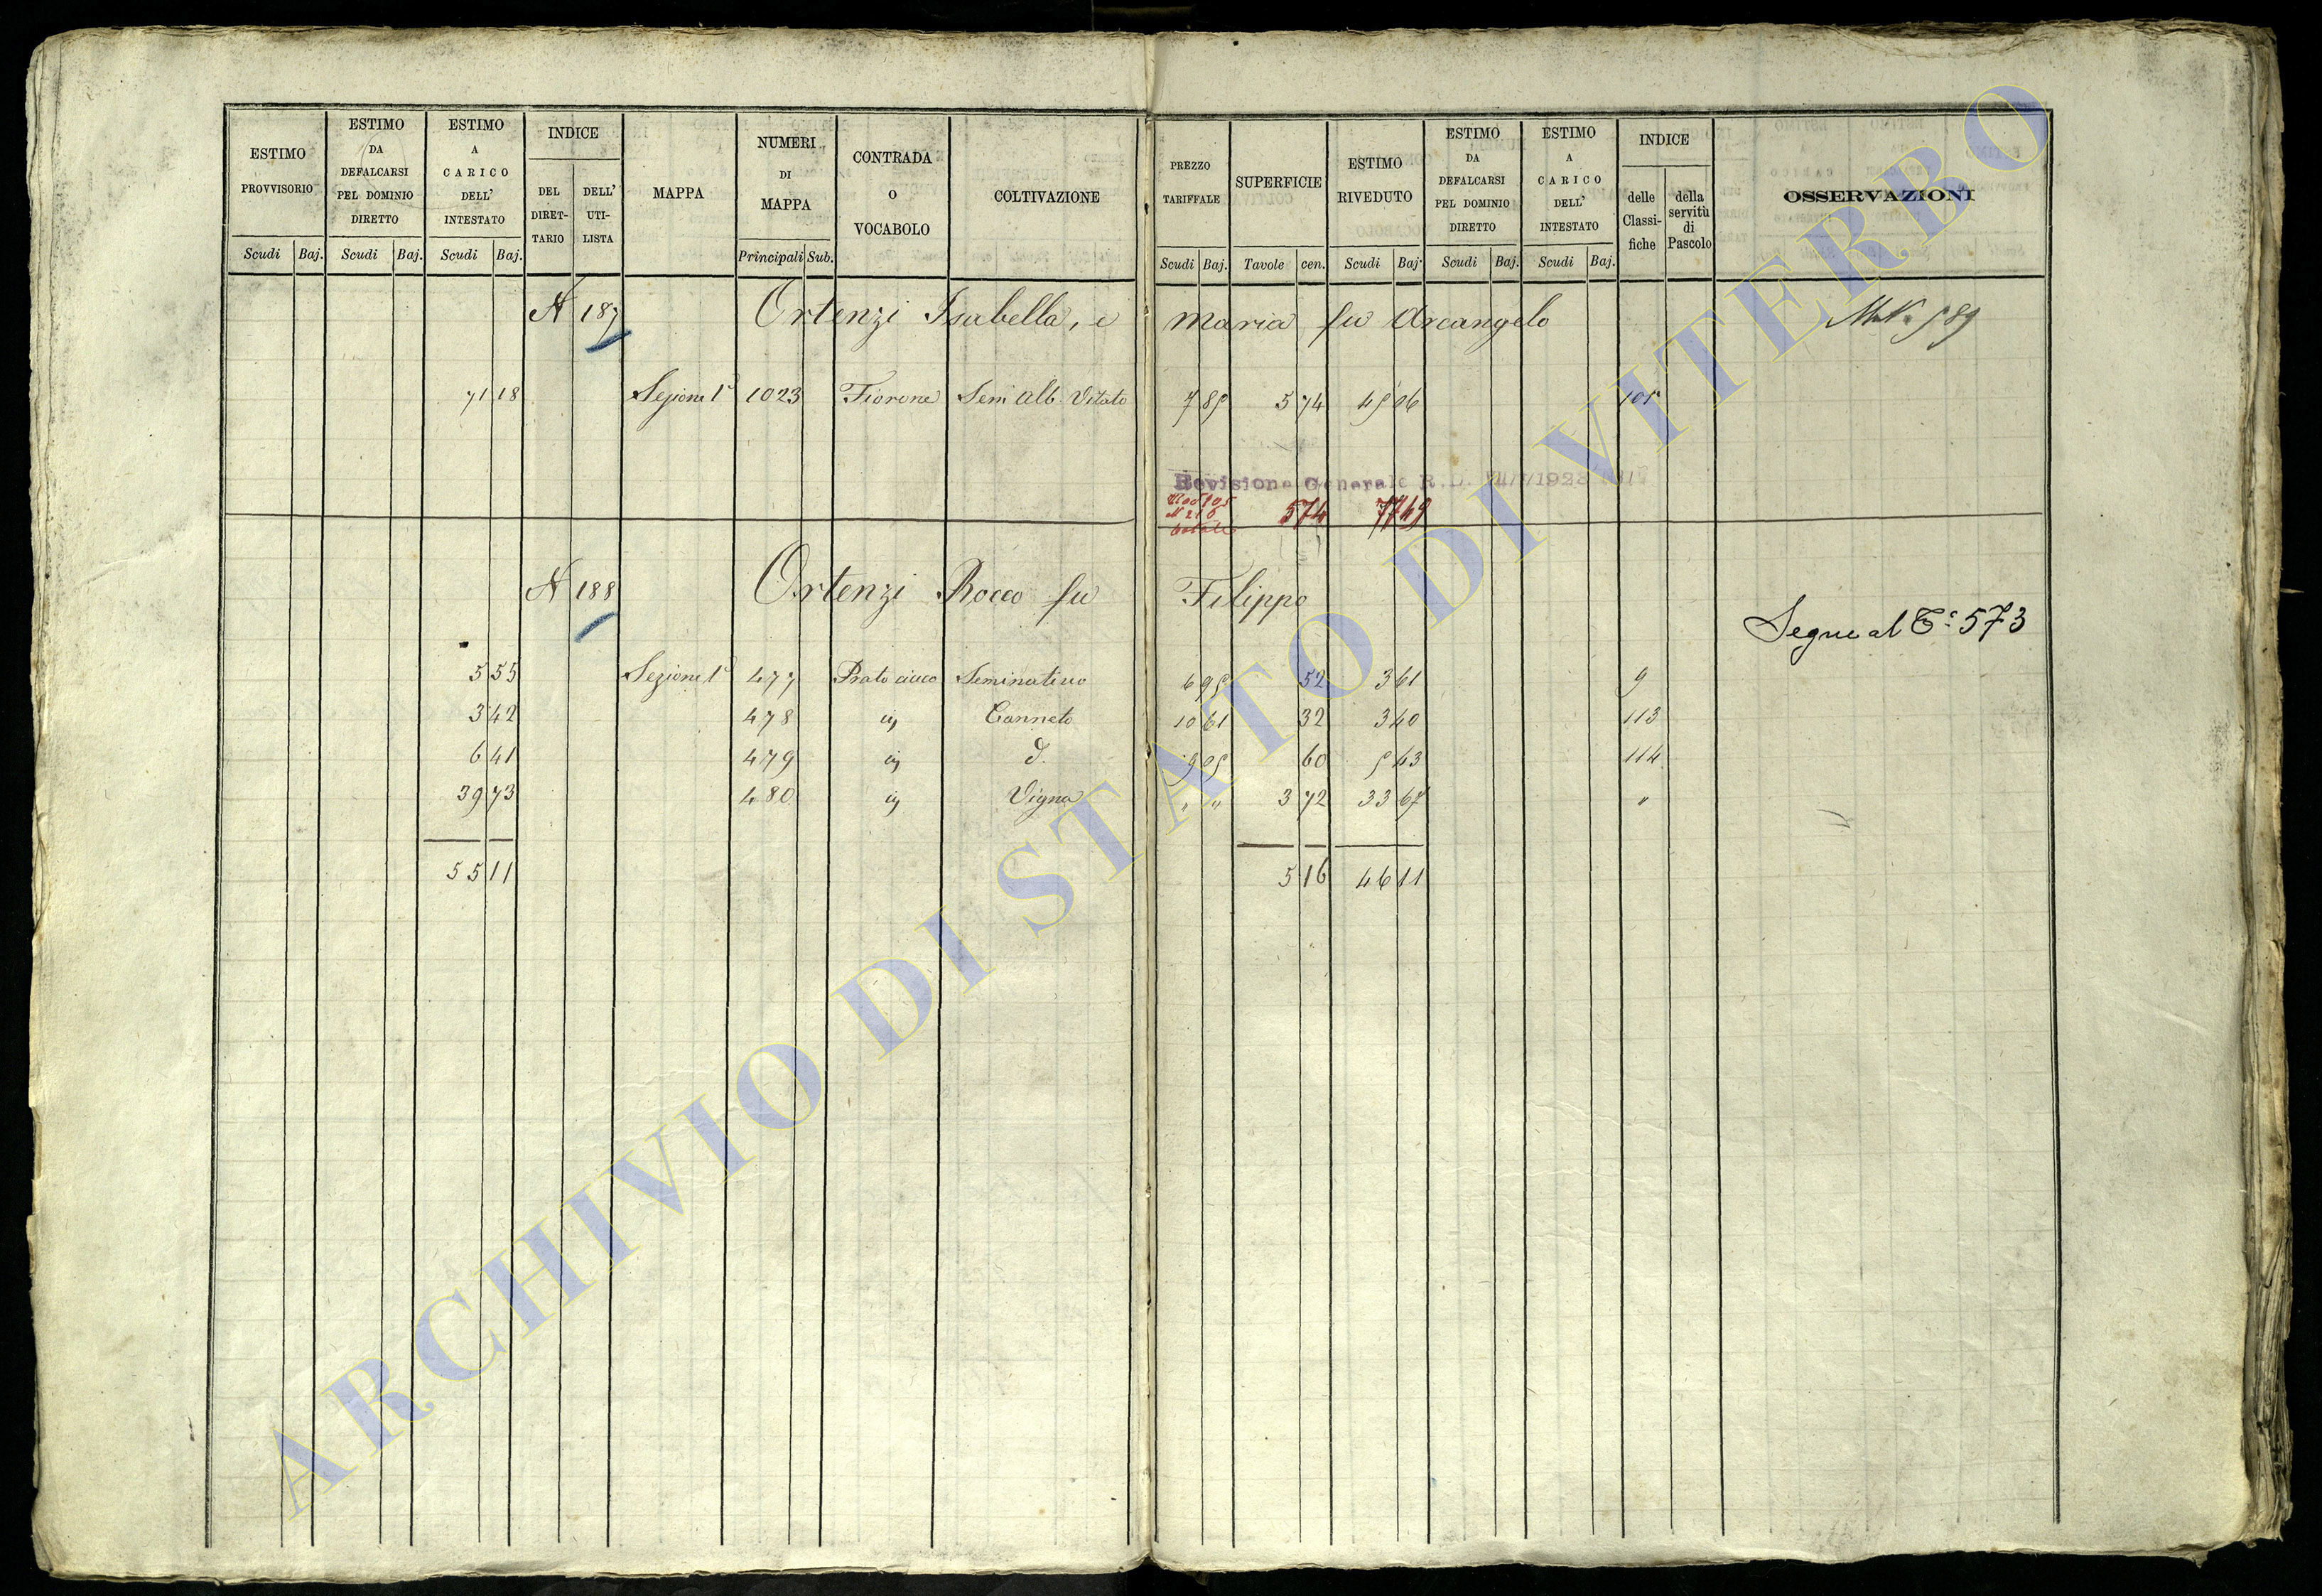 ESTIMO PROVVISORIO
Scudi Baj.
ESTIMO DA DEFALCARSI PEL DOMINIO DIRETTO
Scudi Baj.
ESTIMO A CARICO DELL' INTESTATO
Scudi Baj.
INDICE
DEL DIRET- TARIO
DELL' UTI- LISTA
MAPPA
NUMERI DI MAPPA
Principali Sub.
CONTRADA O VOCABOLO
COLTIVAZIONE
PREZZO TARIFFALE
Scudi Baj.
SUPERFICIE
Tavole cen.
ESTIMO RIVEDUTO
Scudi Baj.
ESTIMO DA DEFALCARSI PEL DOMINIO DIRETTO
Scudi Baj.
ESTIMO A CARICO DELL' INTESTATO
Scudi Baj.
INDICE
delle Classi- fiche
della servitù di Pascolo
OSSERVAZIONI
N 187 Ortenzi Isabella, e Maria fu Arcangelo
71 18 Sezione 1ª 1023 Fiorone Sem Alb Vitato 7 85 5 74 45 06 105
Revisione Generale R.D.
574 7749
N 188 Ortenzi Rocco fu Filippo
Segue al Tº 573
5 55 Sezione 1ª 477 Prato cieco Seminativo 6 95 52 3 61 9
3 42 478 Canneto 10 61 32 3 40 113
6 41 479 9 05 60 5 43 114
39 73 480 Vigna " " 3 72 33 67 "
55 11 5 16 46 11
ARCHIVIO DI STATO DI VITERBO